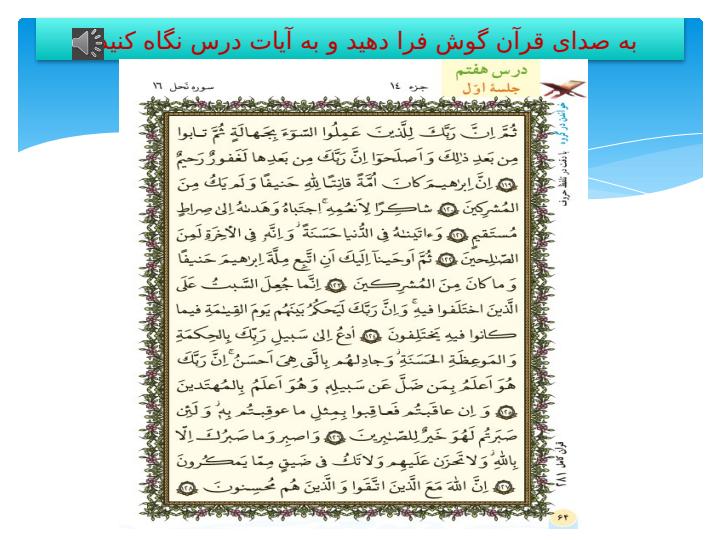 به صدای قرآن گوش فرا دهید و به آیات درس نگاه کنید
درس هفتم
جلسهٔ اوّل
جزء ۱۴
سوره نَحل ۱۶
خواندن در گروه
با دقت در تلفظ حروف
ثُمَّ اِنَّ رَبَّكَ لِلَّذينَ عَمِلُوا السّوٓءَ بِجَهالَةٍ ثُمَّ تابوا
مِن بَعدِ ذٰلِكَ وَ اَصلَحوا اِنَّ رَبَّكَ مِن بَعدِها لَغَفورٌ رَحيمٌ
۱۱۹ اِنَّ اِبراهيمَ كانَ اُمَّةً قانِتًا لِلّٰهِ حَنيفًا وَ لَم يَكُ مِنَ
المُشرِكينَ ۱۲۰ شاكِرًا لِاَنعُمِهِ ۚ اجتَباهُ وَ هَدىٰهُ اِلىٰ صِراطٍ
مُستَقيمٍ ۱۲۱ وَ ءاتَينٰهُ فِى الدُّنيا حَسَنَةً ۖ وَ اِنَّهُ فِى الأخِرَةِ لَمِنَ
الصّٰلِحينَ ۱۲۲ ثُمَّ اَوحَينآ اِلَيكَ اَنِ اتَّبِع مِلَّةَ اِبراهيمَ حَنيفًا
وَ ما كانَ مِنَ المُشرِكينَ ۱۲۳ اِنَّما جُعِلَ السَّبتُ عَلَى
الَّذينَ اختَلَفوا فيهِ ۚ وَ اِنَّ رَبَّكَ لَيَحكُمُ بَينَهُم يَومَ القِيٰمَةِ فيما
كانوا فيهِ يَختَلِفونَ ۱۲۴ اُدعُ اِلىٰ سَبيلِ رَبِّكَ بِالحِكمَةِ
وَ المَوعِظَةِ الحَسَنَةِ ۖ وَ جادِلهُم بِالَّتى هِىَ اَحسَنُ ۚ اِنَّ رَبَّكَ
هُوَ اَعلَمُ بِمَن ضَلَّ عَن سَبيلِهِ وَ هُوَ اَعلَمُ بِالمُهتَدينَ
۱۲۵ وَ اِن عاقَبتُم فَعاقِبوا بِمِثلِ ما عوقِبتُم بِهِ ۖ وَ لَئِن
صَبَرتُم لَهُوَ خَيرٌ لِلصّٰبِرينَ ۱۲۶ وَ اصبِر وَ ما صَبرُكَ اِلّا
بِاللّٰهِ ۚ وَ لا تَحزَن عَلَيهِم وَ لا تَكُ فى ضَيقٍ مِمّا يَمكُرونَ
۱۲۷ اِنَّ اللّٰهَ مَعَ الَّذينَ اتَّقَوا وَ الَّذينَ هُم مُحسِنونَ ۱۲۸
قرآن کامل ۲۸۱
۶۴